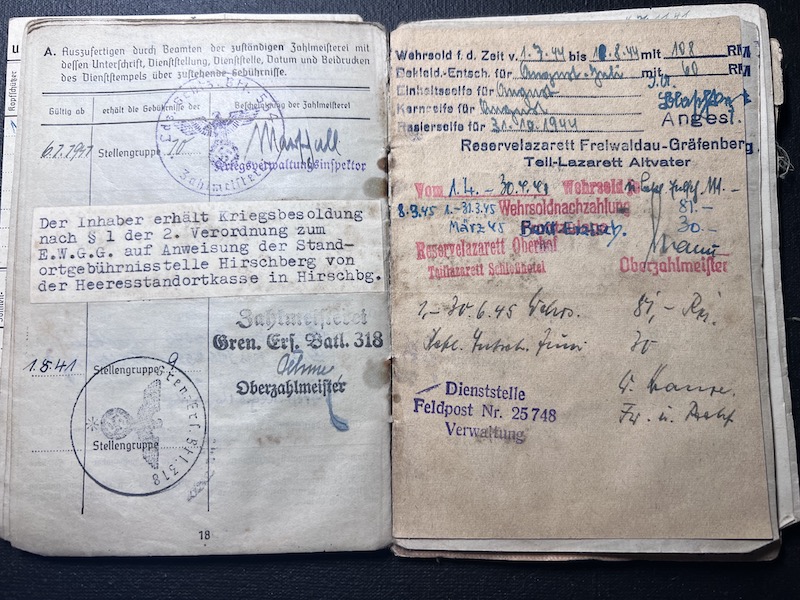 A. Auszufertigen durch Beamten der zuständigen Zahlmeisterei mit
dessen Unterschrift, Dienststellung, Dienststelle, Datum und Beidrucken
des Dienststempels über zustehende Gebührnisse.
Gültig ab
erhält die Gebührnisse der
Bescheinigung der Zahlmeisterei
Stellengruppe 10
Kriegsverwaltungsinspektor
Zahlmeisterei
Der Inhaber erhält Kriegsbesoldung
nach § 1 der 2. Verordnung zum
E.W.G.G. auf Anweisung der Stand-
ortgebührnisstelle Hirschberg von
der Heeresstandortkasse in Hirschbg.
Zahlmeisterei
Gren. Ers. Batl. 318
1.8.41 Stellengruppe 9
Oberzahlmeister
Gren. Ers. Btl. 318
Stellengruppe
18
Wehrsold f. d. Zeit v. 1.7.44 bis 8.44 mit 108 RM
Bekleid.-Entsch. für August-Juli mit 60 RM
Einheitsseife für August
Kernseife für August
Rasierseife für 31.10.1944
Angest.
Reservelazarett Freiwaldau-Gräfenberg
Teil-Lazarett Altvater
Vom 1.4. - 30.4. Wehrsold
8.3.45 1.-31.3.45 Wehrsoldnachzahlung 81.-
März 45 30.-
Reservelazarett Oberhof
Teillazarett
Oberzahlmeister
1.-30.6.45 81,-
Juni 30
Dienststelle
Feldpost Nr. 25748
Verwaltung